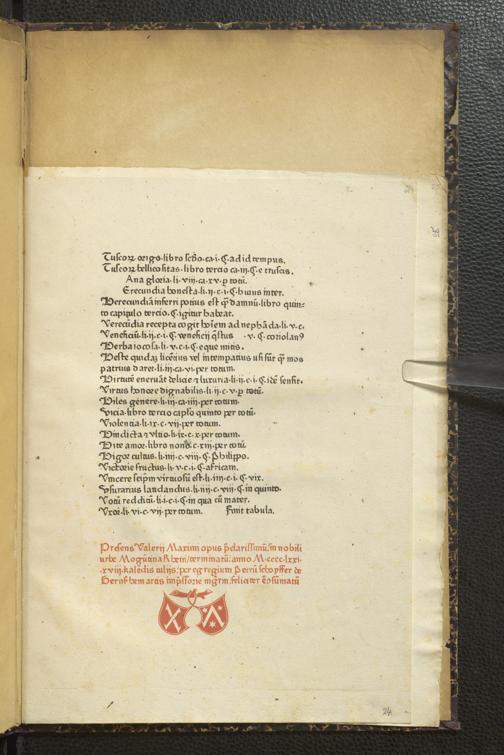 Tuscoꝝ origo·libro scďo·ca·i·ꞔ·ad id tempus.
Tuscoꝝ bellicositas·libro tercio ca·iij·ꞔ·e truscis.
Ana gloria·li·viij·ca·xv·ꝑ totū.
Erecundia honesta·li·ij·c·i·ꞔ·huius inter.
Verecundiā inferri potius est ꝙ̄ damnū·libro quin⸗
to capiꝉulo tercio·ꞔ·igitur habeat.
Verecūdia recepta cogit hoīem ad nephāda·li·v·c·
Veneficiū·li·ij·c·i·ꞔ·veneficij q̄stus ·v·ꞔ·coriolanꝰ
Verba iocosa·li·v·c·i·ꞔ·eque mitis.
Veste quidaȝ licētius vel intempatius usi sūt ꝙ̄ mos
patrius daret·li·iij·ca·vi·per totum.
Virtutē eneruāt delicie ⁊ luxuria·li·ij·c·i·ꞔ·idē sensit.
Virtus honore dignabilis·li·ij·c·v·ꝑ totū.
Viles genere·li·iij·ca·iiij·per totum.
Vicia·libro tercio caplo quinto per totū.
Violentia·li·ix·c·vij·per totum.
Vindicta ⁊ vltio·li·ix·c·x·per totum.
Vite amor·libro nono·c·xiij·per totū.
Vigor cultus·li·iij·c·viij·ꞔ·Philippo.
Victorie fructus·li·v·c·i·ꞔ·africam.
Vincere seipm virtuosū est·li·iiij·c·i·ꞔ·vix.
Vsurarius laudandus·li·iiij·c·viij·ꞔ·in quinto.
Votū redditū·li·i·c·i·ꞔ·in qua cū mater.
Vxor·li·vi·c·vij·per totum. Finit tabula.
Presens Valerij Maximi opus p̄clarissimū·in nobili
urbe Mogūtina Rheni·terminatū·anno M·cccc·lxxi·
xviij·kalēdis iulijs·per egregium Petrū schoyffer de
Gernsshem artis imp̄ssorie mgr̄m·feliciter ē ↄsūmatū
24